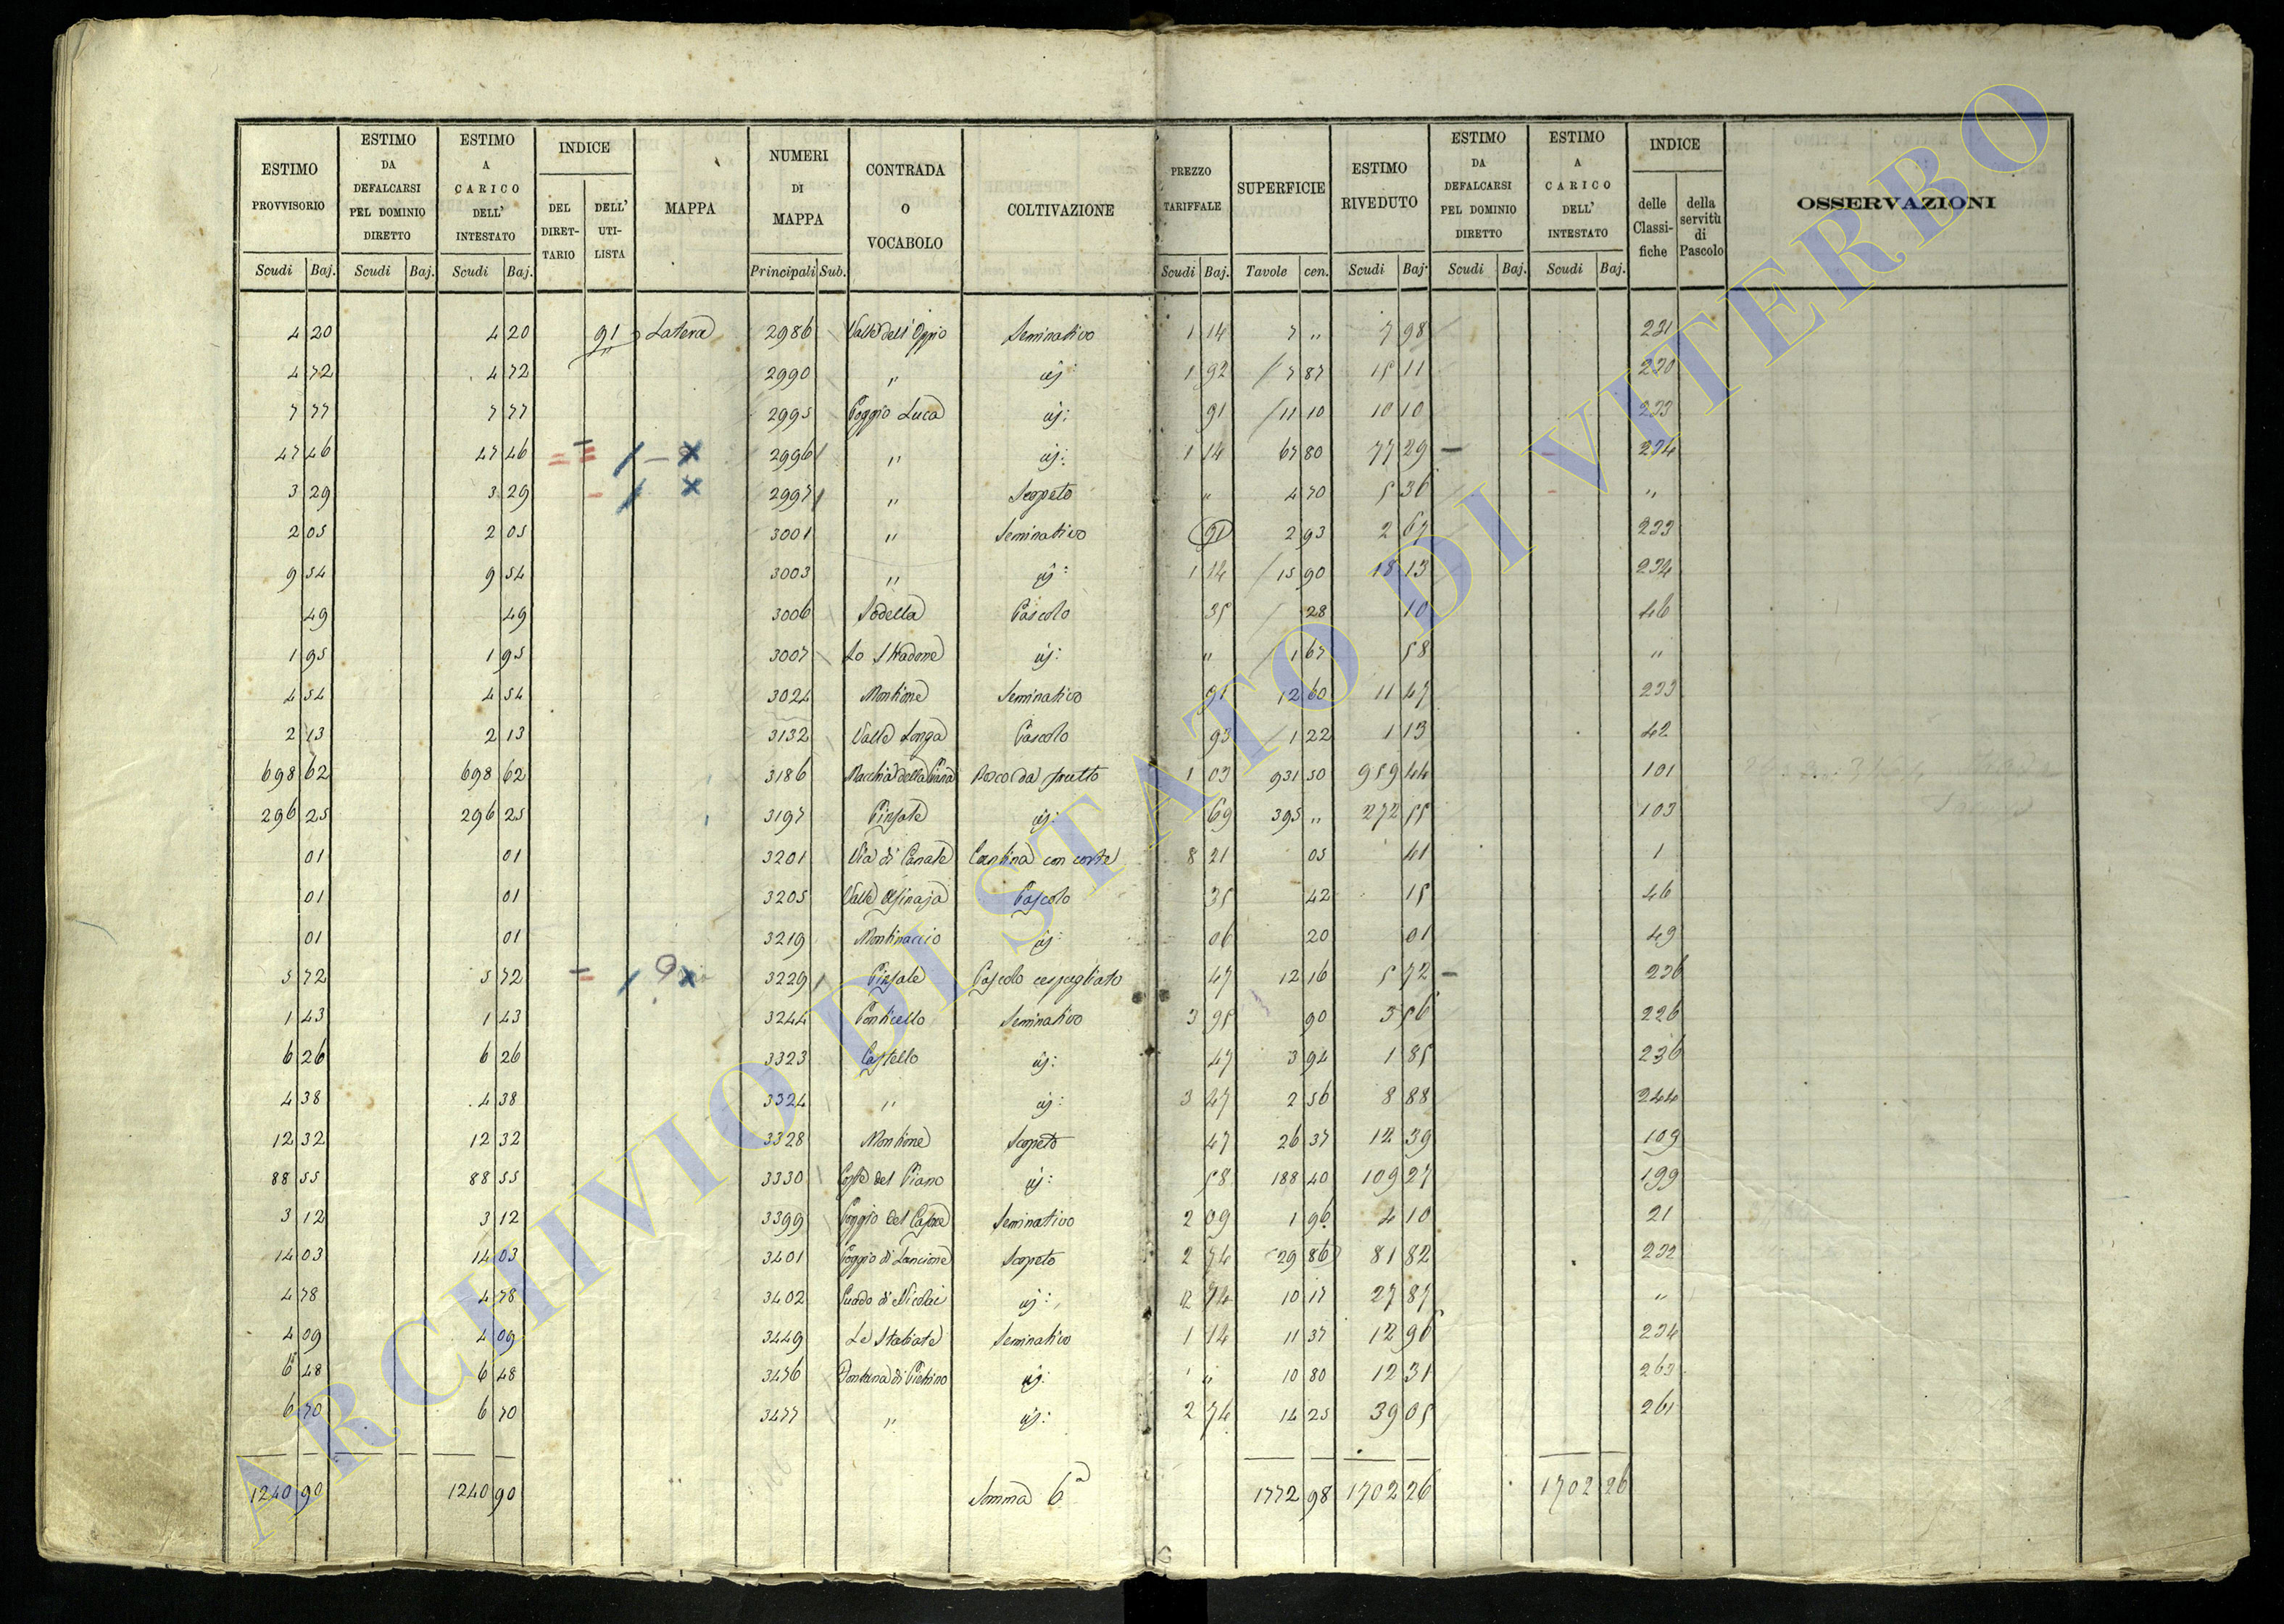 ESTIMO PROVVISORIO | ESTIMO DA DEFALCARSI PEL DOMINIO DIRETTO | ESTIMO A CARICO DELL' INTESTATO | INDICE | MAPPA | NUMERI DI MAPPA | CONTRADA O VOCABOLO | COLTIVAZIONE | PREZZO TARIFFALE | SUPERFICIE | ESTIMO RIVEDUTO | ESTIMO DA DEFALCARSI PEL DOMINIO DIRETTO | ESTIMO A CARICO DELL' INTESTATO | INDICE | OSSERVAZIONI
DEL DIRET-TARIO | DELL' UTI-LISTA | delle Classi-fiche | della servitù di Pascolo
Scudi | Baj. | Scudi | Baj. | Scudi | Baj. | Principali | Sub. | Scudi | Baj. | Tavole | cen. | Scudi | Baj. | Scudi | Baj. | Scudi | Baj.
4 20 | 4 20 | 91 | Latera | 2986 | Valle dell'Oppio | Seminativo | 1 14 | 7 " | 7 98 | 231
4 72 | 4 72 | 2990 | " | id: | 1 92 | 7 87 | 15 11 | 230
7 77 | 7 77 | 2995 | Poggio Luca | id: | 91 | 11 10 | 10 10 | 233
47 46 | 47 46 | 2996 | " | id: | 1 14 | 67 80 | 77 29 | 234
3 29 | 3 29 | 2997 | " | Scopeto | " | 4 70 | 5 36 | "
2 05 | 2 05 | 3001 | " | Seminativo | 91 | 2 93 | 2 67 | 233
9 54 | 9 54 | 3003 | " | id: | 1 14 | 15 90 | 18 13 | 234
49 | 49 | 3006 | Sodella | Pascolo | 35 | 28 | 10 | 46
1 95 | 1 95 | 3007 | Lo Stradone | id: | " | 1 67 | 58 | "
4 54 | 4 54 | 3024 | Montione | Seminativo | 91 | 12 60 | 11 47 | 233
2 13 | 2 13 | 3132 | Valle Longa | Pascolo | 93 | 1 22 | 1 13 | 42
698 62 | 698 62 | 3186 | Macchia della | Bosco da frutto | 1 03 | 931 50 | 959 44 | 101
296 25 | 296 25 | 3197 | id: | 69 | 395 " | 272 55 | 103
01 | 01 | 3201 | Via di Canale | Cantina con corte | 8 21 | 05 | 41 | 1
01 | 01 | 3205 | Valle Asinaja | Pascolo | 35 | 42 | 15 | 46
01 | 01 | 3219 | Montinaccio | id: | 06 | 20 | 01 | 49
5 72 | 5 72 | 3229 | Pascolo cespugliato | 47 | 12 16 | 5 72 | 236
1 43 | 1 43 | 3244 | Ponticello | Seminativo | 3 95 | 90 | 3 56 | 226
6 26 | 6 26 | 3323 | Castello | id: | 47 | 3 94 | 1 85 | 236
4 38 | 4 38 | 3324 | " | id: | 3 47 | 2 56 | 8 88 | 244
12 32 | 12 32 | 3328 | Montione | Scopeto | 47 | 26 37 | 12 39 | 109
88 55 | 88 55 | 3330 | Coste del Piano | id: | 58 | 188 40 | 109 27 | 199
3 12 | 3 12 | 3399 | Poggio del | Seminativo | 2 09 | 1 96 | 4 10 | 21
14 03 | 14 03 | 3401 | Poggio di Lancione | Scopeto | 2 74 | 29 86 | 81 82 | 232
4 78 | 4 78 | 3402 | Guado di Nicolai | id: | 2 74 | 10 17 | 27 87 | "
4 09 | 4 09 | 3449 | Le Stallate | Seminativo | 1 14 | 11 37 | 12 96 | 234
6 48 | 6 48 | 3476 | Fontana di Pietrino | id: | " " | 10 80 | 12 31 | 263
6 70 | 6 70 | 3477 | " | id: | 2 74 | 14 25 | 39 05 | 261
1240 90 | 1240 90 | Somma 6a | 1772 98 | 1702 26 | 1702 26
ARCHIVIO DI STATO DI VITERBO